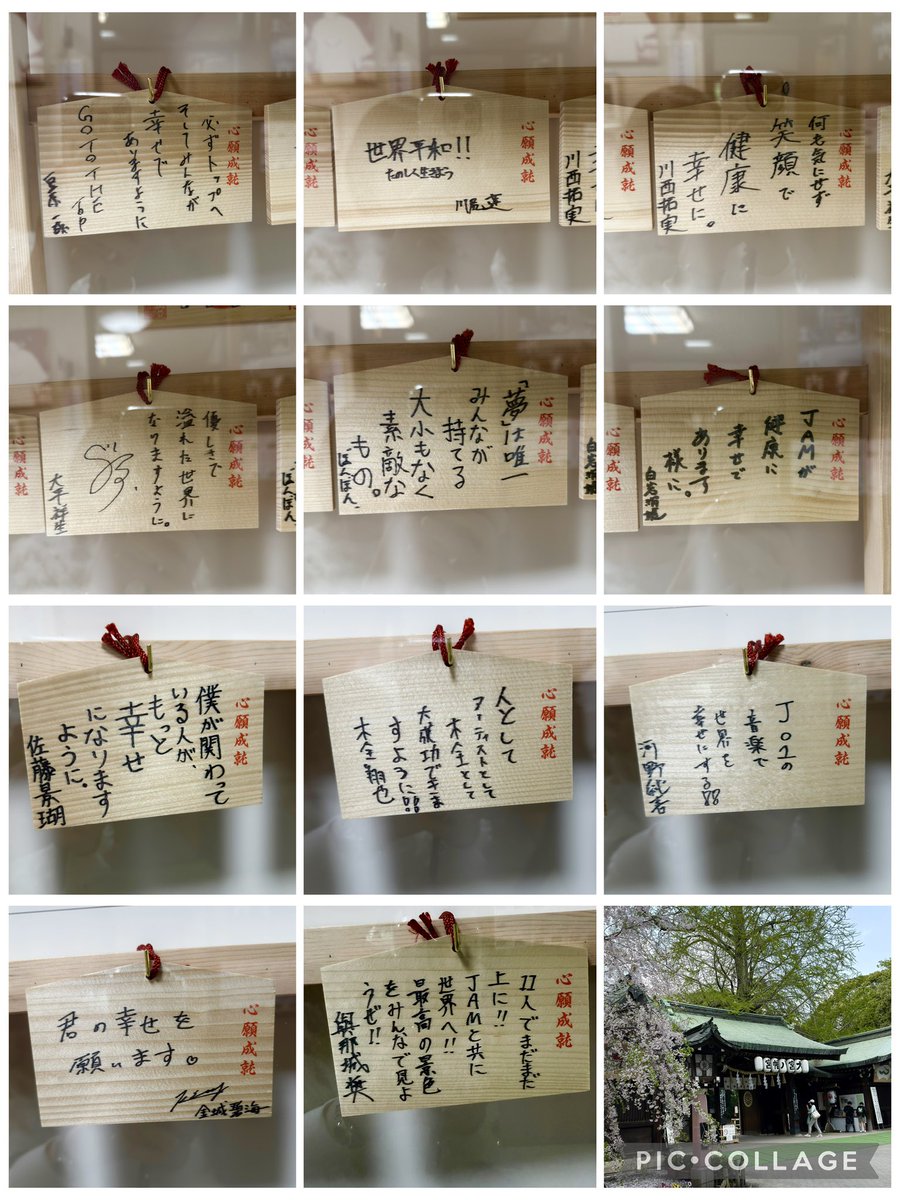 心願成就
必ずトップへ
そしてみんなが
幸せで
ありますように
GO TO THE TOP
豆原一成
心願成就
世界平和!!
たのしく生きよう
川尻蓮
心願成就
川西拓実
心願成就
何も気にせず
笑顔で
健康に
幸せに。
川西拓実
心願成就
心願成就
優しさで
溢れた世界に
なりますように。
大平祥生
心願成就
ぼんぼん。
心願成就
「夢」は唯一
みんなが
持てる
大小もなく
素敵な
もの。
ぼんぼん。
心願成就
白岩瑠姫
心願成就
JAMが
健康に
幸せで
あります
様に。
白岩瑠姫
心願成就
心願成就
僕が関わって
いる人が、
もっと
幸せ
になります
ように。
佐藤景瑚
心願成就
人として
アーティストとして
木全として
大成功できま
すように!!
木全翔也
心願成就
JO1の
音楽で
世界を
幸せにする!!
河野純喜
心願成就
君の幸せを
願います。
金城碧海
心願成就
11人でまだまだ
上に!!
JAMと共に
世界へ!!
最高の景色
をみんなで見よ
うぜ!!
與那城奨
PIC•COLLAGE